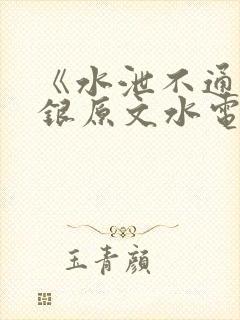 《水泄不通
银原文水电
玉青颜